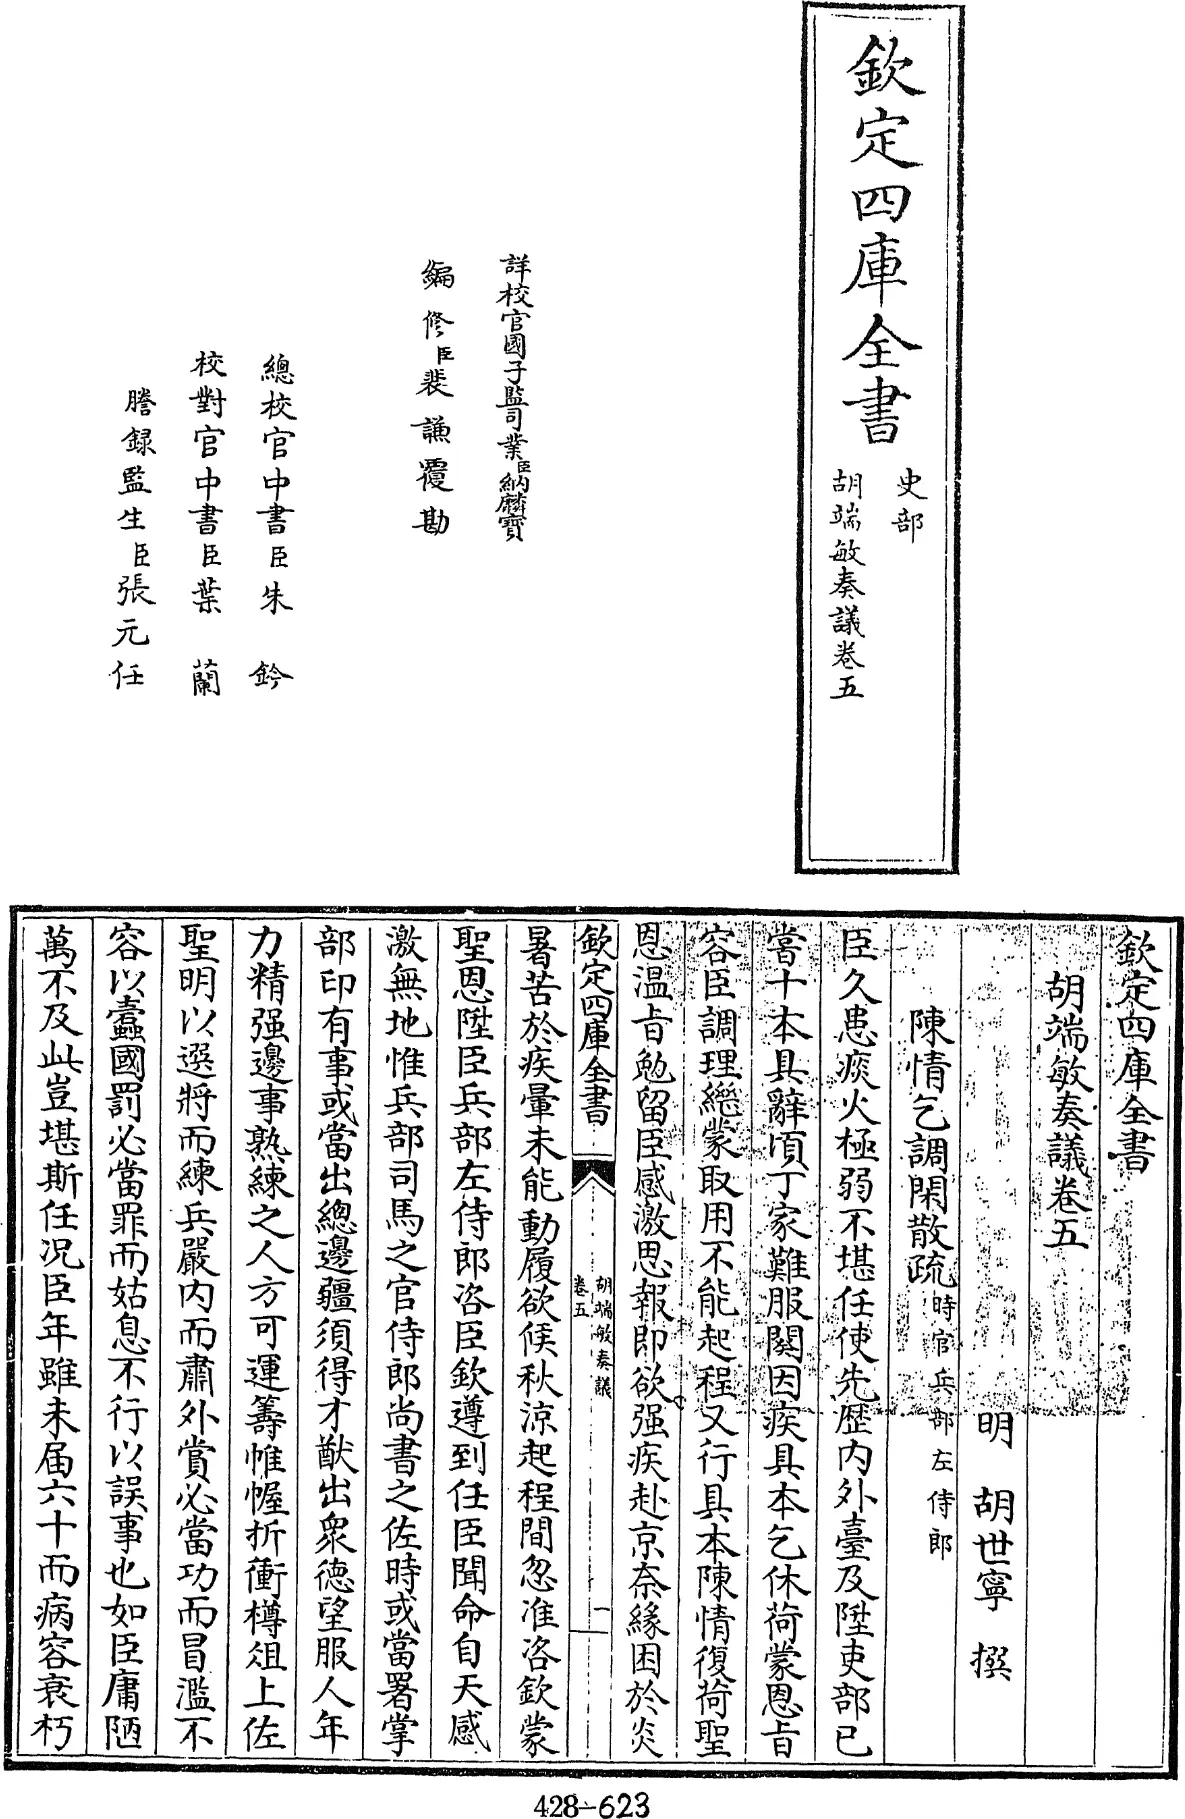 欽定四庫全書
史部
胡端敏奏議卷五
詳校官國子監司業臣納麟寶
編修臣裴謙覆勘
總校官中書臣朱鈐
校對官中書臣葉蘭
謄録監生臣張元任
欽定四庫全書
胡端敏奏議卷五
明 胡世寧 撰
陳情乞調閑散疏時官兵部左侍郎
臣久患痰火極弱不堪任使先歴内外臺及陞吏部已
嘗十本具辭頃丁家難服闋因疾具本乞休荷蒙恩旨
容臣調理繼蒙取用不能起程又行具本陳情復荷聖
恩温旨勉留臣感激思報即欲强疾赴京奈緣困於炎
欽定四庫全書
胡端敏奏議
卷五
一
暑苦於疾暈未能動履欲候秋涼起程間忽准咨欽蒙
聖恩陞臣兵部左侍郎咨臣欽遵到任臣聞命自天感
激無地惟兵部司馬之官侍郎尚書之佐時或當署掌
部印有事或當出總邊疆須得才猷出衆徳望服人年
力精强邊事熟練之人方可運籌帷幄折衝樽俎上佐
聖明以選將而練兵嚴内而肅外賞必當功而冒濫不
容以蠹國罰必當罪而姑息不行以誤事也如臣庸陋
萬不及此豈堪斯任况臣年雖未届六十而病容衰朽
428-623